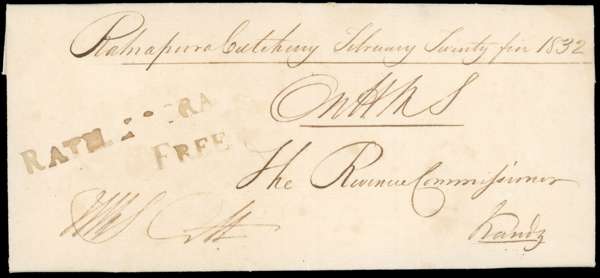 Ratnapura Cutcherry February Twenty five 1832
On H M S
RATN PORA
FREE
The Revenue Commissioner
Kandy